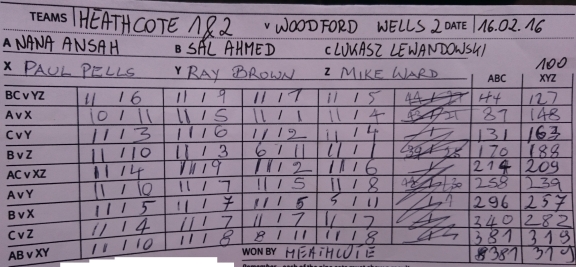 TEAMS HEATHCOTE 1&2 v WOODFORD WELLS 2 DATE 16.02.16
A NANA ANSAH B SAL AHMED C LUKASZ LEWANDOWSKI
X PAUL PELLS Y RAY BROWN Z MIKE WARD ABC XYZ
100
BCvYZ 11 / 6 11 / 9 11 / 7 11 / 5 44 127
AvX 10 / 11 11 / 5 11 / 1 11 / 4 87 148
CvY 11 / 3 11 / 6 11 / 2 11 / 4 131 163
BvZ 11 / 10 11 / 3 6 / 11 11 / 170 188
ACvXZ 11 / 4 11 / 9 11 / 2 11 / 6 214 209
AvY 11 / 10 11 / 7 11 / 5 11 / 8 258 239
BvX 11 / 5 11 / 7 11 / 5 5 / 11 296 257
CvZ 11 / 4 11 / 7 11 / 7 11 / 7 340 282
ABvXY 11 / 10 11 / 8 8 / 11 11 / 8 381 319
WON BY HEATHCOTE 381 319